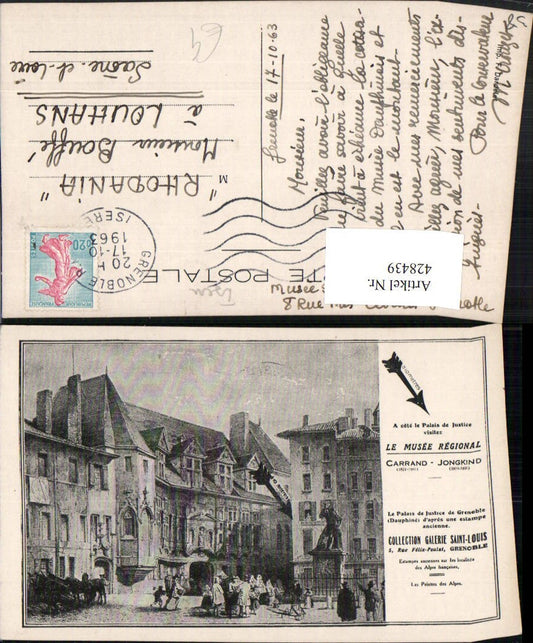 E9
Saône-et-Loire
à LOUHANS
Monsieur Bouffé
M
"RHODANIA"
GRENOBLE
ISERE
20 H
17-10
1963
0,20
CARTE POSTALE
Grenoble 17-10-63
Monsieur,
Veuillez avoir l'obligeance
me faire savoir à quelle
du Musée Dauphinois et
quel en est le montant.
Avec mes remerciements
veuillez agréer, Monsieur, l'ex-
-ion de mes sentiments dis-
-tingués.
Pour le Conservateur
Artikel Nr.
428439
A côté le Palais de Justice
visitez
LE MUSÉE RÉGIONAL
CARRAND - JONGKIND
Le Palais de Justice de Grenoble
(Dauphiné) d'après une estampe
ancienne.
COLLECTION GALERIE SAINT-LOUIS
5, Rue Félix-Poulat, GRENOBLE
Estampes anciennes sur les localités
des Alpes françaises,
Les Peintes des Alpes.